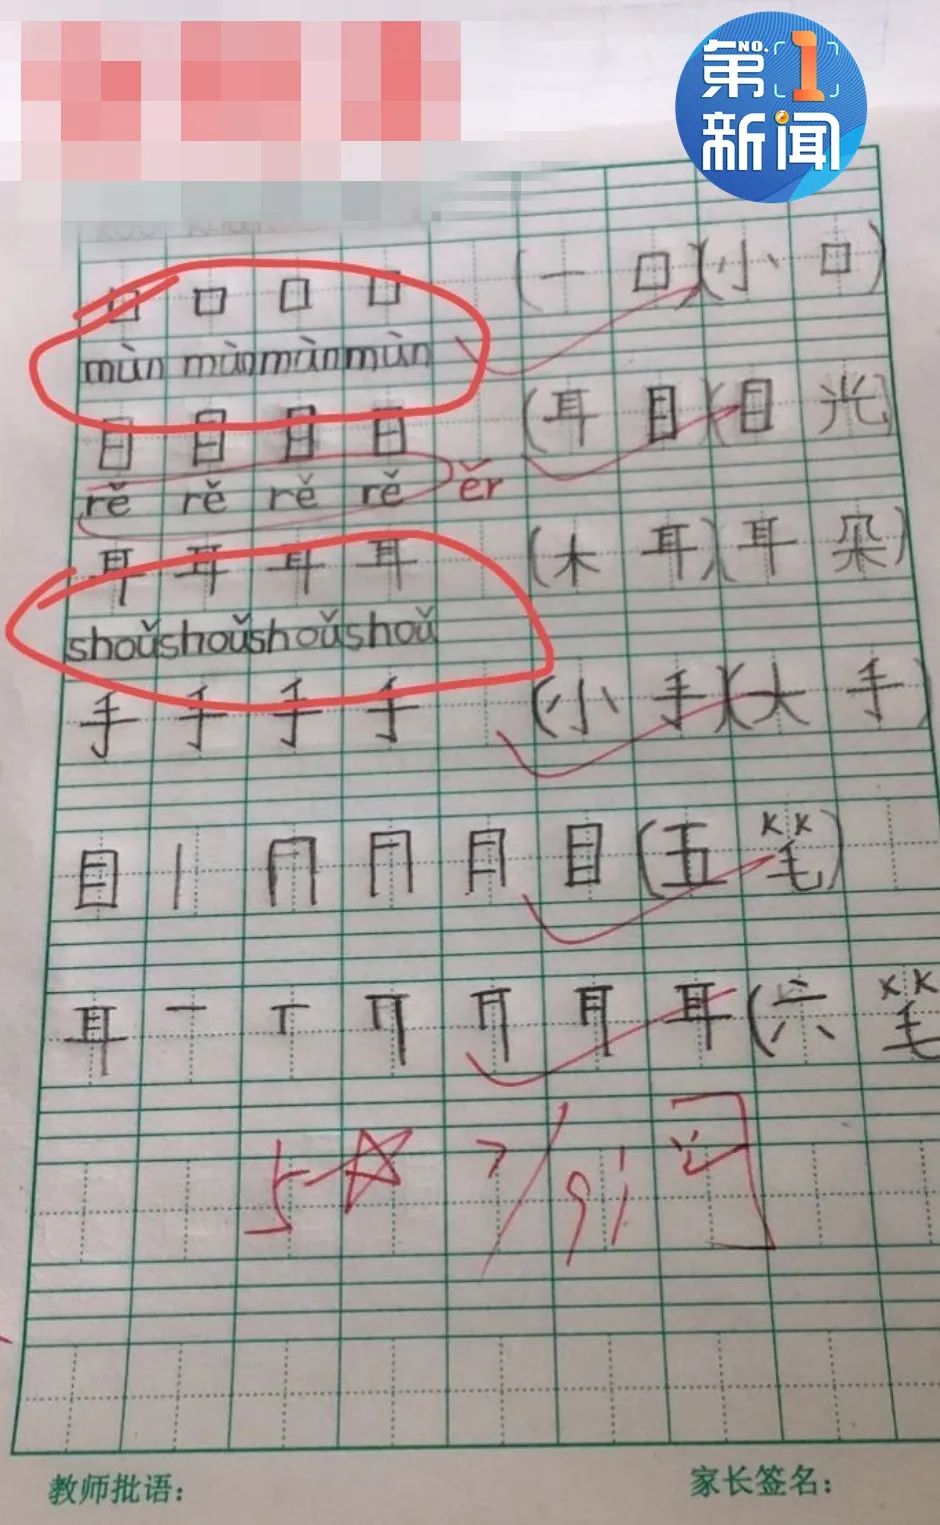 第1新闻
NO.
口 口 口 口 (一口)(小口)
mùn mùn mùn mùn
目 目 目 目 (耳目)(目光)
rě rě rě rě ěr
耳 耳 耳 耳 (木耳)(耳朵)
shoǔ shoǔ shoǔ shoǔ
手 手 手 手 (小手)(大手)
目 丨 冂 目 (五笔)
耳 一 丅 耳 (六笔
教师批语：
家长签名：